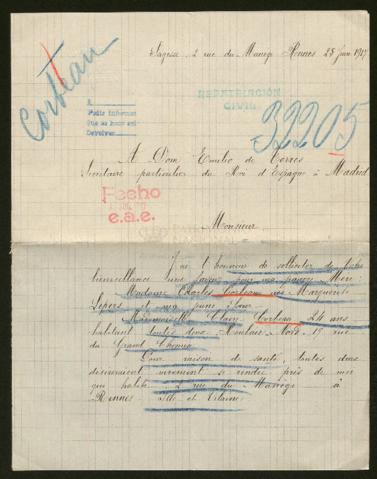 Sagesse, 2 rue du Manège Rennes 25 Juin 1917
Corbeau
REPATRIACIÓN
CIVIL
A
32205
A Dom Emilio de Torres
Secrétaire particulier du Roi d'Espagne à Madrid
Fecho
e.a.e.
Monsieur
J'ai l'honneur de solliciter de votre
bienveillance une faveur pour ma pauvre Mère
Madame Charles née Marguerite
Lepers et ma jeune sœur
Mademoiselle 24 ans
habitant toutes deux Nord, 19 rue
du Grand Chemin
Pour raison de santé, toutes deux
désireraient vivement se rendre près de moi
qui habite 2 rue du Manège à
Rennes Ille et Vilaine